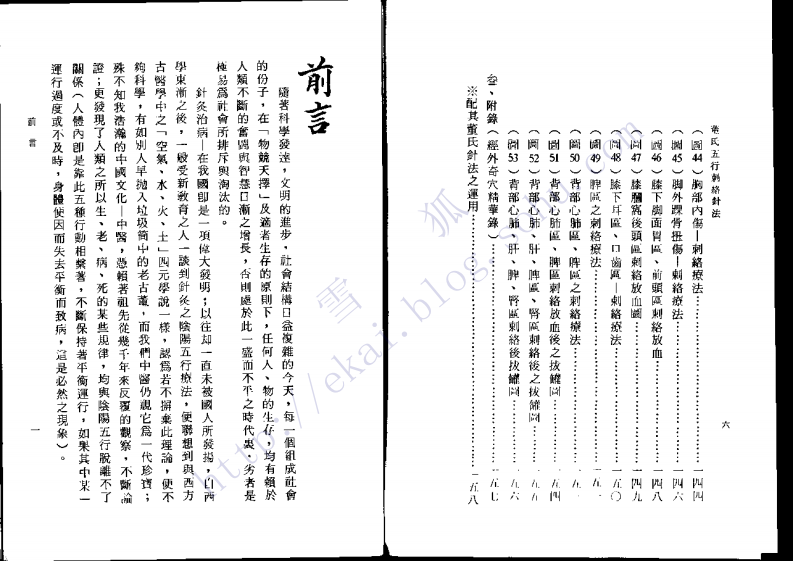 董氏五行刺絡針法
六
(圖44)胸部內傷—刺絡療法………一四四
(圖45)腳外踝骨扭傷—刺絡療法………一四六
(圖46)膝下腳面胃區、前頭區刺絡放血………一四八
(圖47)膝膕窩後頭區刺絡放血圖………一四九
(圖48)膝下耳區、口齒區—刺絡療法………一五〇
(圖49)脾區之刺絡療法………一五一
(圖50)背部心肺區、脾區之刺絡療法
(圖51)背部心肺區、脾區刺絡放血後之拔罐圖………一五四
(圖52)背部心肺、肝、脾區、腎區刺絡後之拔罐圖………一五五
(圖53)背部心肺區、肝、脾、腎區刺絡後拔罐圖………一五六
參、附錄(經外奇穴精華錄)………一五七
※配其董氏針法之運用………一五八
前言
隨著科學發達,文明的進步,社會結構日益複雜的今天,每一個組成社會
的份子,在「物競天擇」及適者生存的原則下,任何人、物的生存,均有賴於
人類不斷的奮鬥與智慧日漸之增長,否則處於此一盛而不平之時代裏,劣者是
極易為社會所排斥與淘汰的。
針灸治病—在我國卽是一項偉大發明;以往却一直未被國人所發揚,自西
學東漸之後,一般受新教育之人一談到針灸之陰陽五行療法,便聯想到與西方
古醫學中之「空氣、水、火、土」四元學說一樣,認為若不摒棄此理論,便不
夠科學,有如別人早拋入垃圾筒中的老古董,而我們中醫仍視它為一代珍寶;
殊不知我浩瀚的中國文化—中醫,憑賴著祖先從幾千年來反覆的觀察,不斷論
證;更發現了人類之所以生、老、病、死的某些規律,均與陰陽五行脫離不了
關係(人體內卽是靠此五種行動相繫著,不斷保持著平衡運行,如果其中某一
運行過度或不及時,身體便因而失去平衡而致病,這是必然之現象)。
前言
一
雪狐
http://ekai.blog.